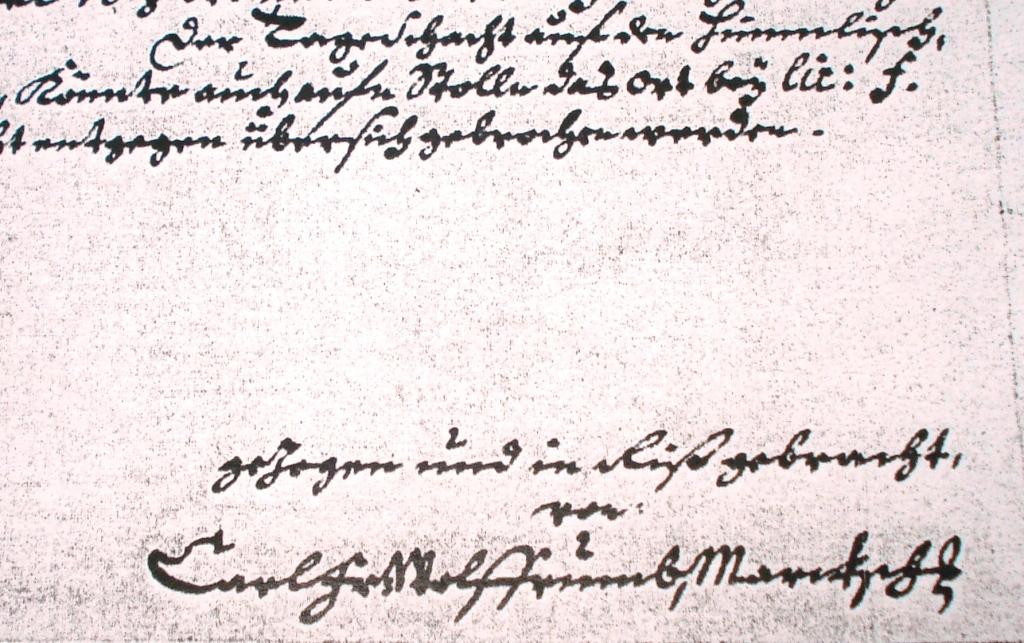 Der Tageschacht auf den Himmlisch,
Könnte auch aufn Stolln das ort beÿ lit: f.
entgegen übersich gebrochen werden.
gezogen und in Riß gebracht,
von:
Carl Wolffrumb Marcksch